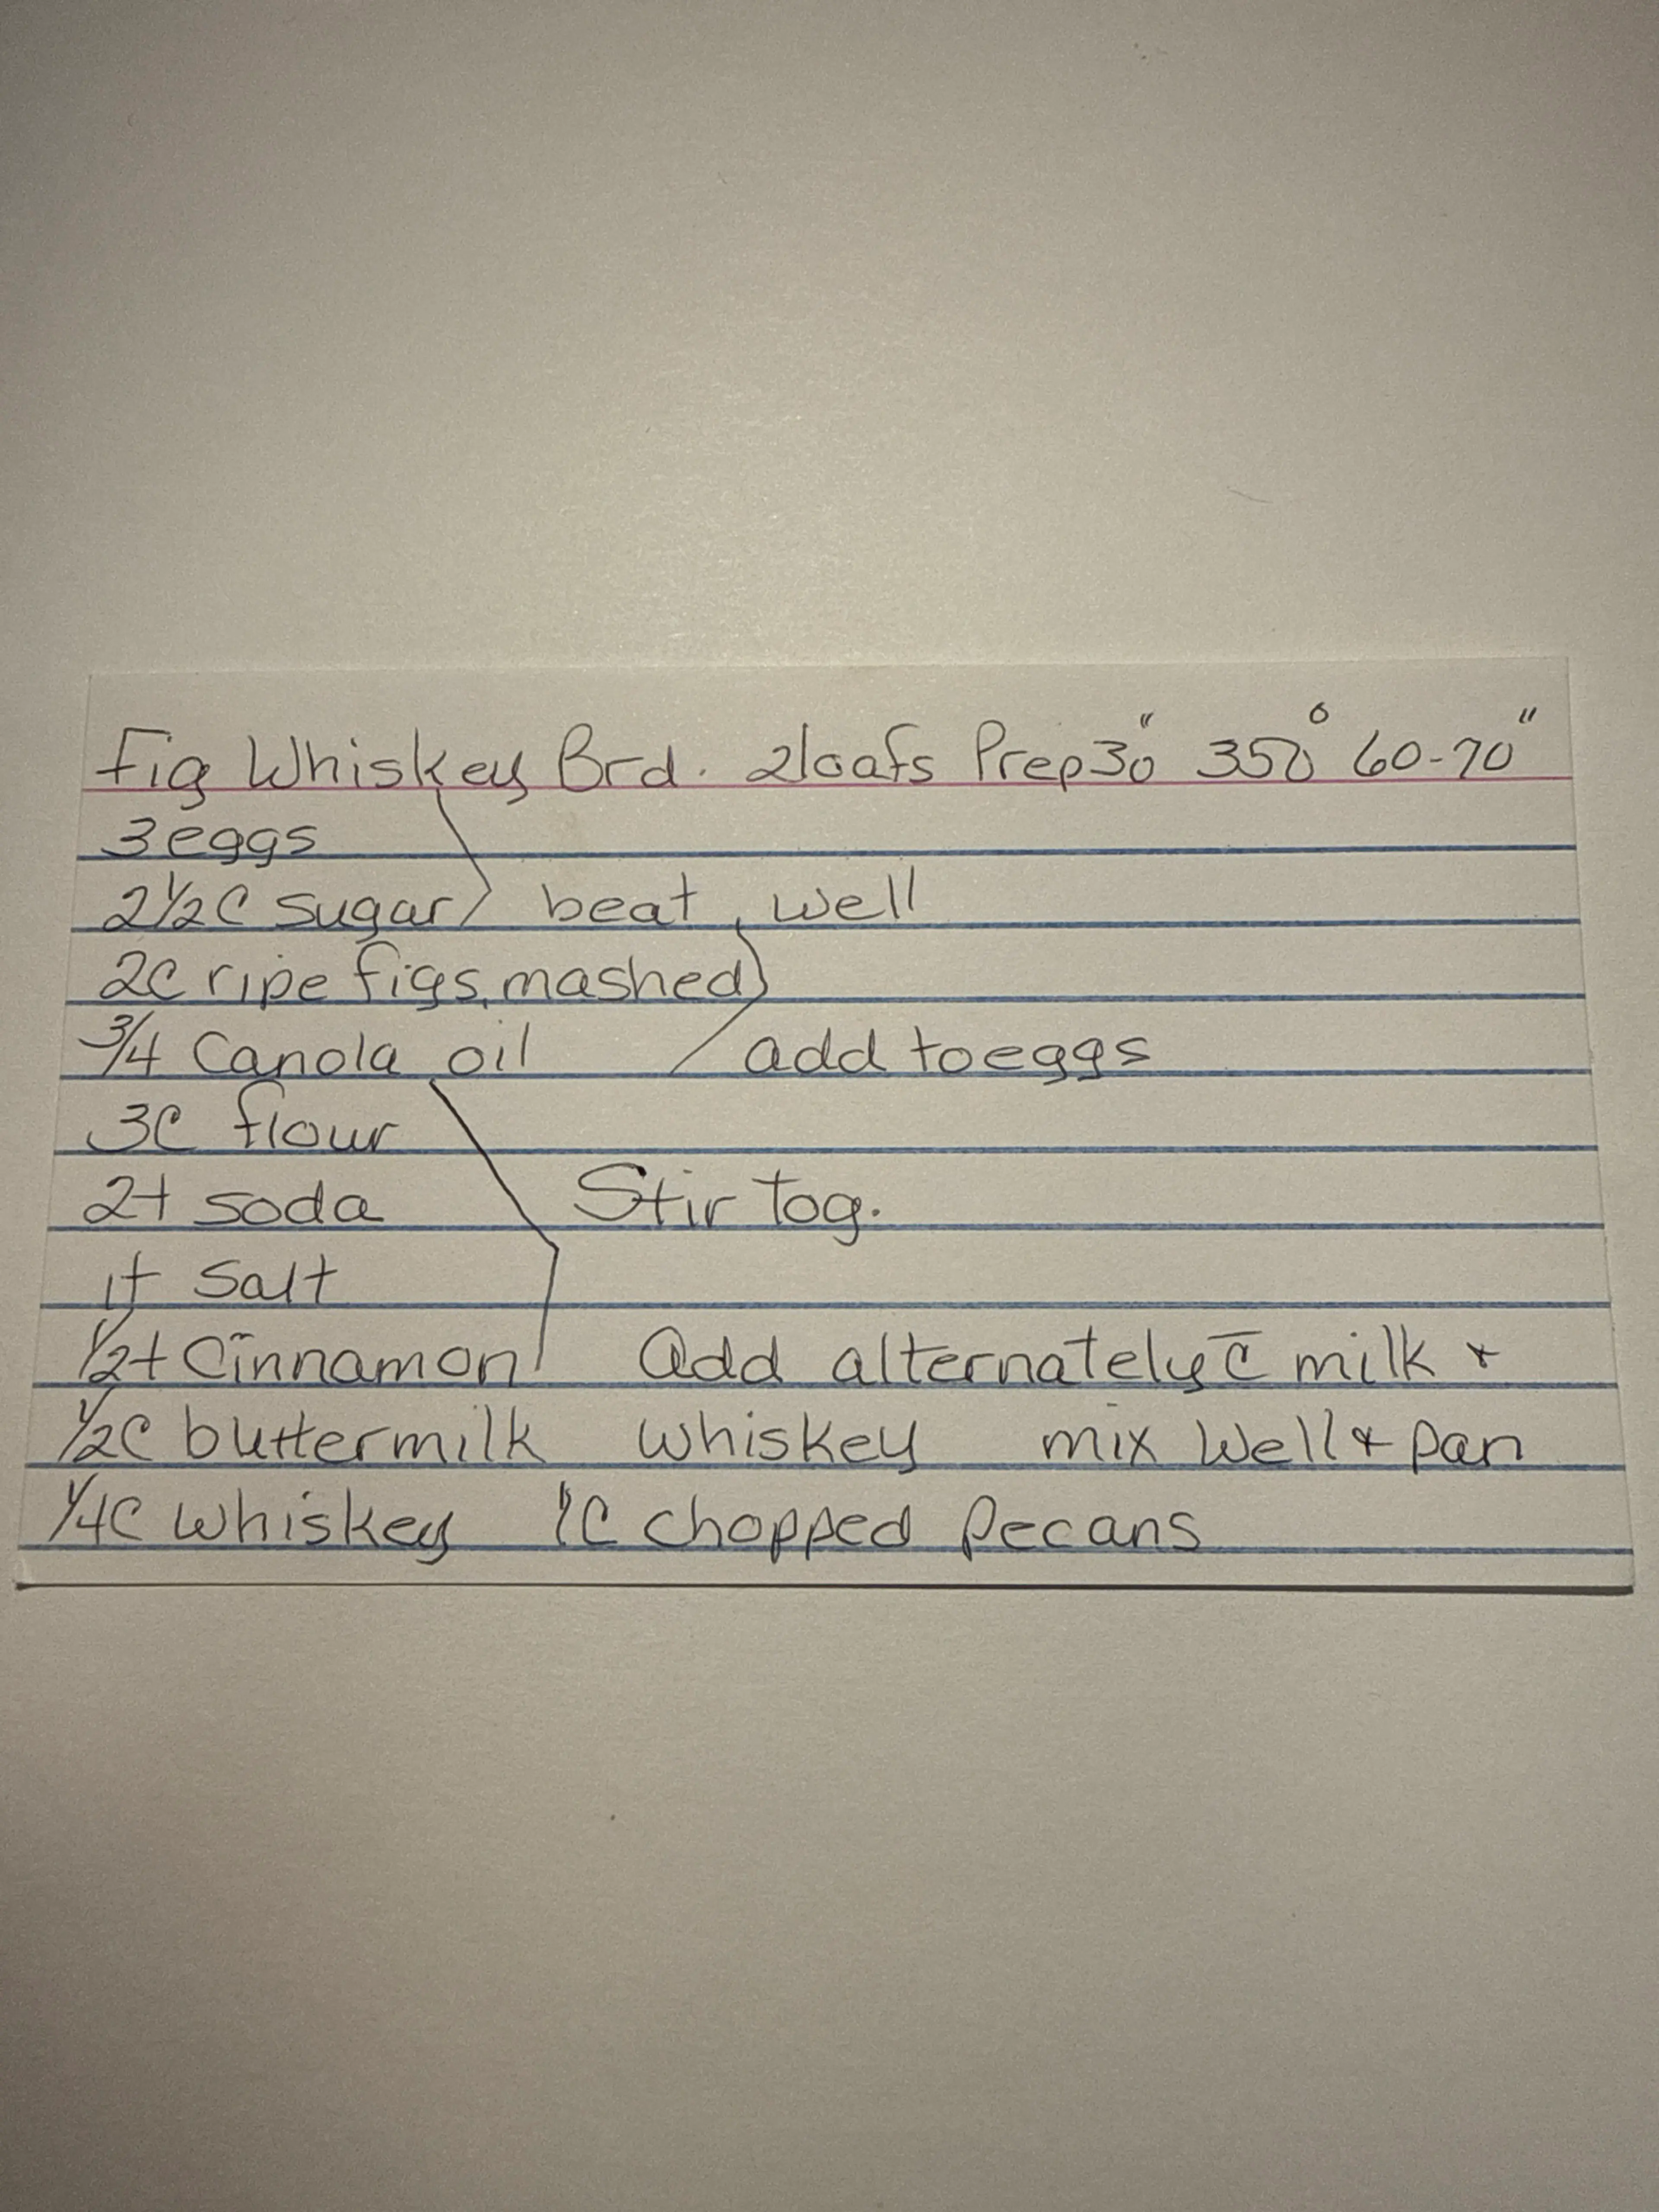 Fig Whiskey Brd. 2loafs Prep30" 350° 60-70"
3 eggs
2 1/2 C sugar beat well
2C ripe figs, mashed
3/4 Canola oil add to eggs
3C flour
2t soda Stir Tog.
1t Salt
1/2t Cinnamon Add alternately c̄ milk &
1/2C buttermilk whiskey mix well & pan
1/4C whiskey 1C chopped Pecans